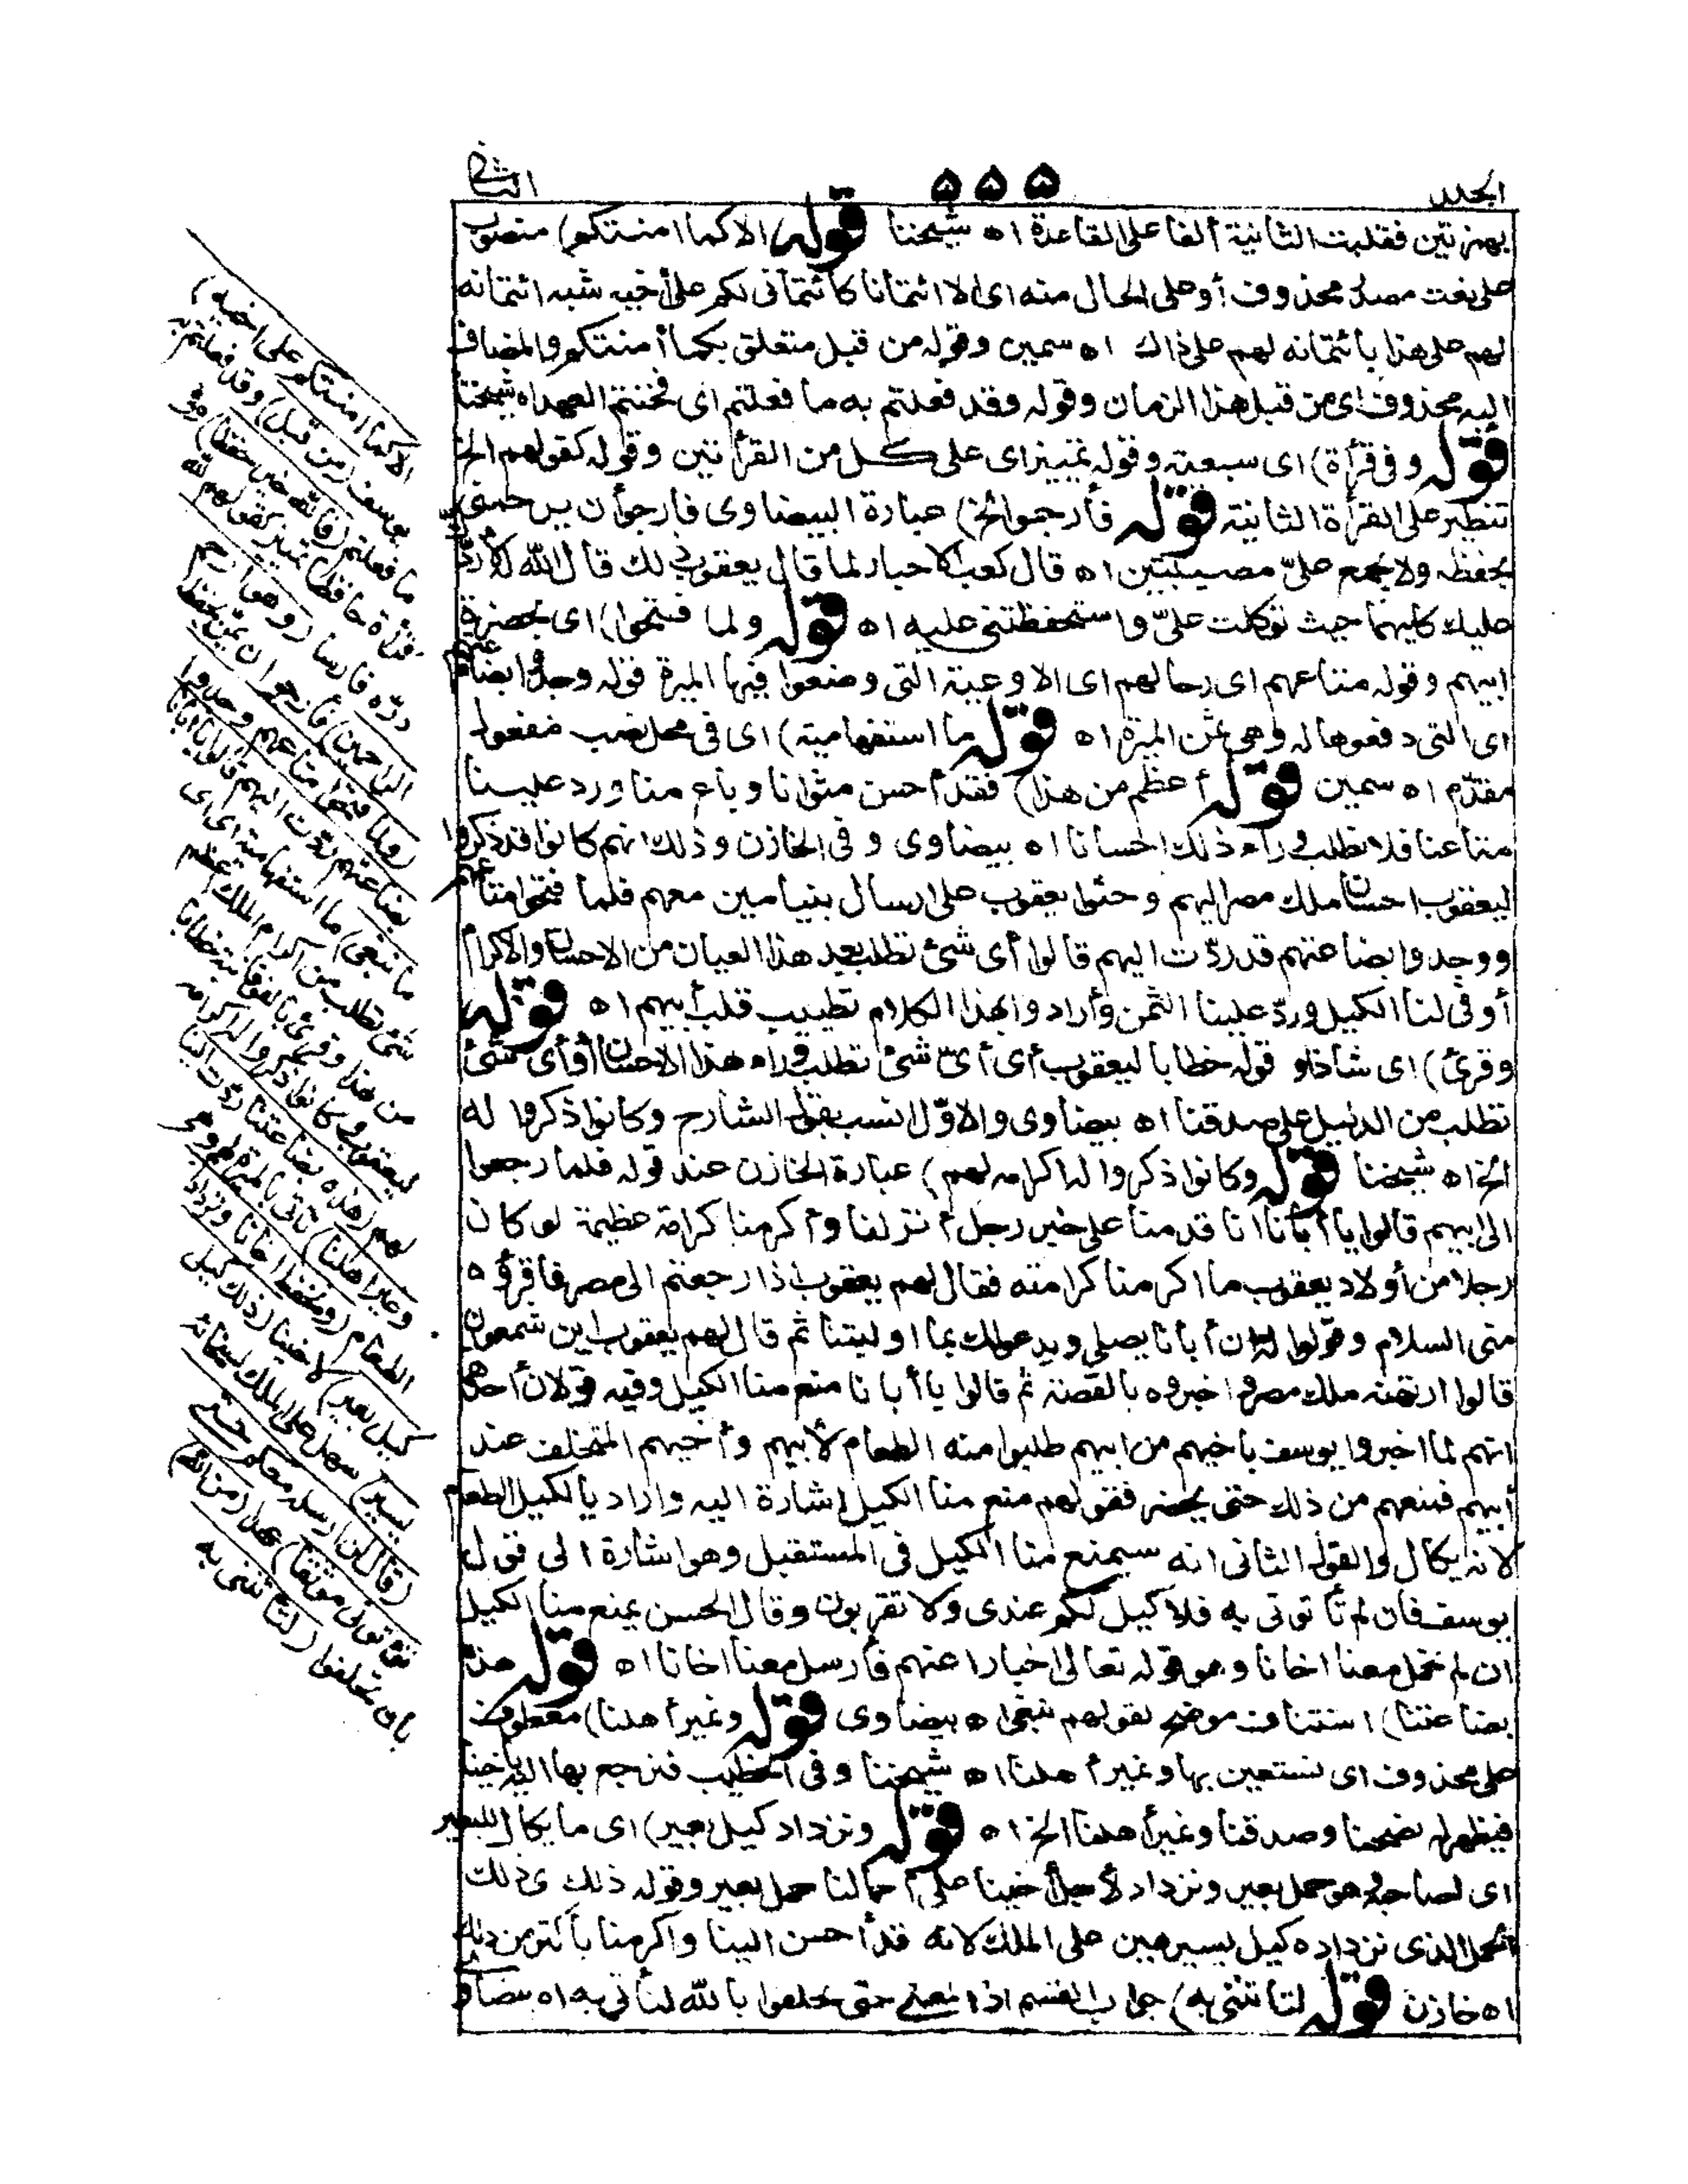 الجلد
۵۵۵
الثاني
بهمزتين فقلبت الثانية ألفا على القاعدة اه شيخنا قوله (الا كما امنتكم) منصوب
على نعت مصدر محذوف أو على الحال منه اى الا ائتمانا كائتمانى لكم على أخيه شبه ائتمانه
لهم على هذا بائتمانه لهم على ذاك اه سمين وقوله من قبل متعلق بكما أمنتكم والمضاف
اليه محذوف اى من قبل هذا الزمان وقوله وقد فعلتم به ما فعلتم اى فخنتم العهد اه شيخنا
قوله وفى قرأة) اى سبعية وقوله تمييز اى على كل من القرأتين وقوله كقولهم الخ
تنظير على القرأة الثانية قوله فأرجموا الخ) عبارة البيضاوى فارجو أن يرحمنى
بحفظه ولا يجمع علىّ مصيبتين اه قال كعب الاحبار لما قال يعقوب ذلك قال الله لأردّن
عليك كليهما حيث توكلت علىّ واستحفظتنى عليه اه قوله ولما فتحوا) اى بحضرة
ابيهم وقوله متاعهم اى رحالهم اى الاوعية التى وضعوا فيها الميرة قوله وجدوا بضاعتهم
اى التى دفعوها له وهى ثمن الميرة اه قوله ما استفهامية) اى فى محل نصب مفعول
مقدّم اه سمين قوله أعظم من هذا) فقد أحسن مثوانا وباع منا ورد علينا
متاعنا فلا نطلب وراء ذلك احسانا اه بيضاوى وفى الخازن وذلك انهم كانوا قد ذكروا
ليعقوب احسان ملك مصر اليهم وحثوا يعقوب على ارسال بنيامين معهم فلما فتحوا متاعهم
ووجدوا بضاعتهم قد ردّت اليهم قالوا أى شئ نطلب بعد هذا العيان من الاحسان والاكرام
أوفى لنا الكيل وردّ علينا الثمن وأرادوا بهذا الكلام تطييب قلب أبيهم اه قوله
وقرئ) اى شاذا وقوله خطابا ليعقوب أى أىّ شئ تطلب وراء هذا الاحسان أو أى شئ
تطلب من الدليل على صدقنا اه بيضاوى والاوّل انسب بقول الشارح وكانوا ذكروا له
الخ اه شيخنا قوله وكانوا ذكروا له اكرامه لهم) عبارة الخازن عند قوله فلما رجعوا
الى ابيهم قالوا يا أبانا انا قدمنا على خير رجل أنزلنا وأكرمنا كرامة عظيمة لو كان
رجلا من أولاد يعقوب ما اكرمنا كرامته فقال لهم يعقوب اذا رجعتم الى مصر فاقرؤه
منى السلام وقولوا له ان أبانا يصلى ويدعو لك بما اوليتنا ثم قال لهم يعقوب اين شمعون
قالوا ارتهنه ملك مصر واخبروه بالقصة ثم قالوا يا أبانا منع منا الكيل وفيه قولان أحدهما
انهم لما اخبروا يوسف باخيهم من ابيهم طلبوا منه الطعام لأبيهم وأخيهم المتخلف عند
أبيهم فمنعهم من ذلك حتى يحضر فقولهم منع منا الكيل اشارة اليه واراد بالكيل الطعام
لانه يكال والقول الثانى انه سيمنع منا الكيل فى المستقبل وهو اشارة الى قول
يوسف فان لم تأتونى به فلا كيل لكم عندى ولا تقربون وقال الحسن يمنع منا الكيل
ان لم تحمل معنا اخانا وهو قوله تعالى اخبارا عنهم فأرسل معنا اخانا اه قوله هذه
بضاعتنا) استئناف موضح لقولهم نبغى اه بيضاوى قوله ونمير أهلنا) معطوف
على محذوف اى نستعين بها ونمير أهلنا اه شيخنا وفى الخطيب فنرجع بها اليه باخينا
فيظهر له نصحنا وصدقنا ونمير أهلنا الخ اه قوله ونزداد كيل بعير) اى ما يكال للبعير
اى لصاحبه وهو حمل بعير ونزداد لأجل أخينا على أحمالنا حمل بعير وقوله ذلك ى ذلك
الحمل الذى نزداده كيل يسير هين على الملك لانه قد أحسن الينا واكرمنا بأكثر من ذلك
اه خازن قوله لتأتننى به) جواب القسم اذ المعنى حتى تحلفوا بالله لتأتننى به اه بيضاوى
الا كما امنتكم على اخيه)
يوسف (من قبل) وقد فعلتم به
ما فعلتم (فالله خير حفظا) وفى
قرأة حافظا تمييز كقولهم لله
درّه فارسا (وهو ارحم
الراحمين) فأرجو ان يمنّ بحفظه
(ولما فتحوا متاعهم وجدوا
بضاعتهم ردّت اليهم قالوا يا أبانا
ما نبغى) ما استفهامية اى اى
شئ نطلب من اكرام الملك اعظم
من هذا وقرئ بالفوقانية خطابا
ليعقوب وكانوا ذكروا له اكرامه
لهم (هذه بضاعتنا ردّت الينا
ونمير اهلنا) ناتى بالميرة لهم وهى
الطعام (ونحفظ اخانا ونزداد
كيل بعير) لاخينا (ذلك كيل
يسير) سهل على الملك لسخائه
(قال لن ارسله معكم حتى
تؤتون موثقا) عهدا (من الله)
بأن تحلفوا (لتأتننى به